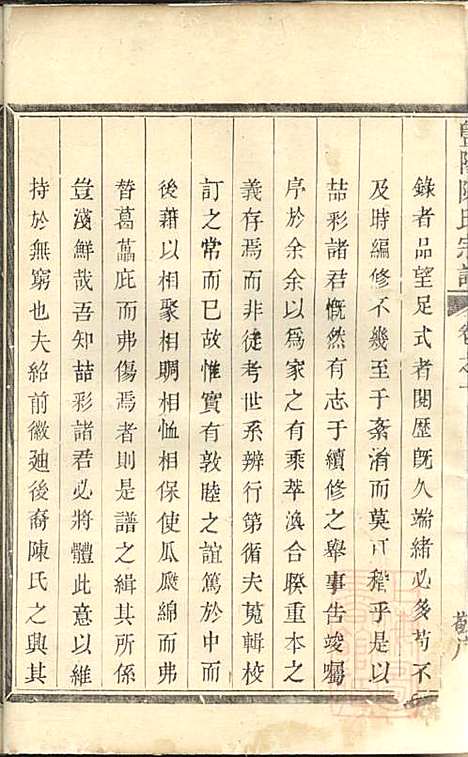 暨陽陳氏宗譜 卷之一
錄者品望足式者閱歷旣久端緒必多茍不
及時編修不幾至于紊淆而莫可稽乎是以
喆彩諸君慨然有志于續修之舉事告竣屬
序於余余以爲家之有乘萃渙合睽重本之
義存焉而非徒考世系辨行第循夫蒐輯校
訂之常而已故惟實有敦睦之誼篤於中而
後藉以相聚相賙相恤相保使瓜瓞綿而弗
替葛藟庇而弗傷焉者則是譜之緝其所係
豈淺鮮哉吾知喆彩諸君必將體此意以維
持於無窮也夫紹前徽廸後裔陳氏之興其